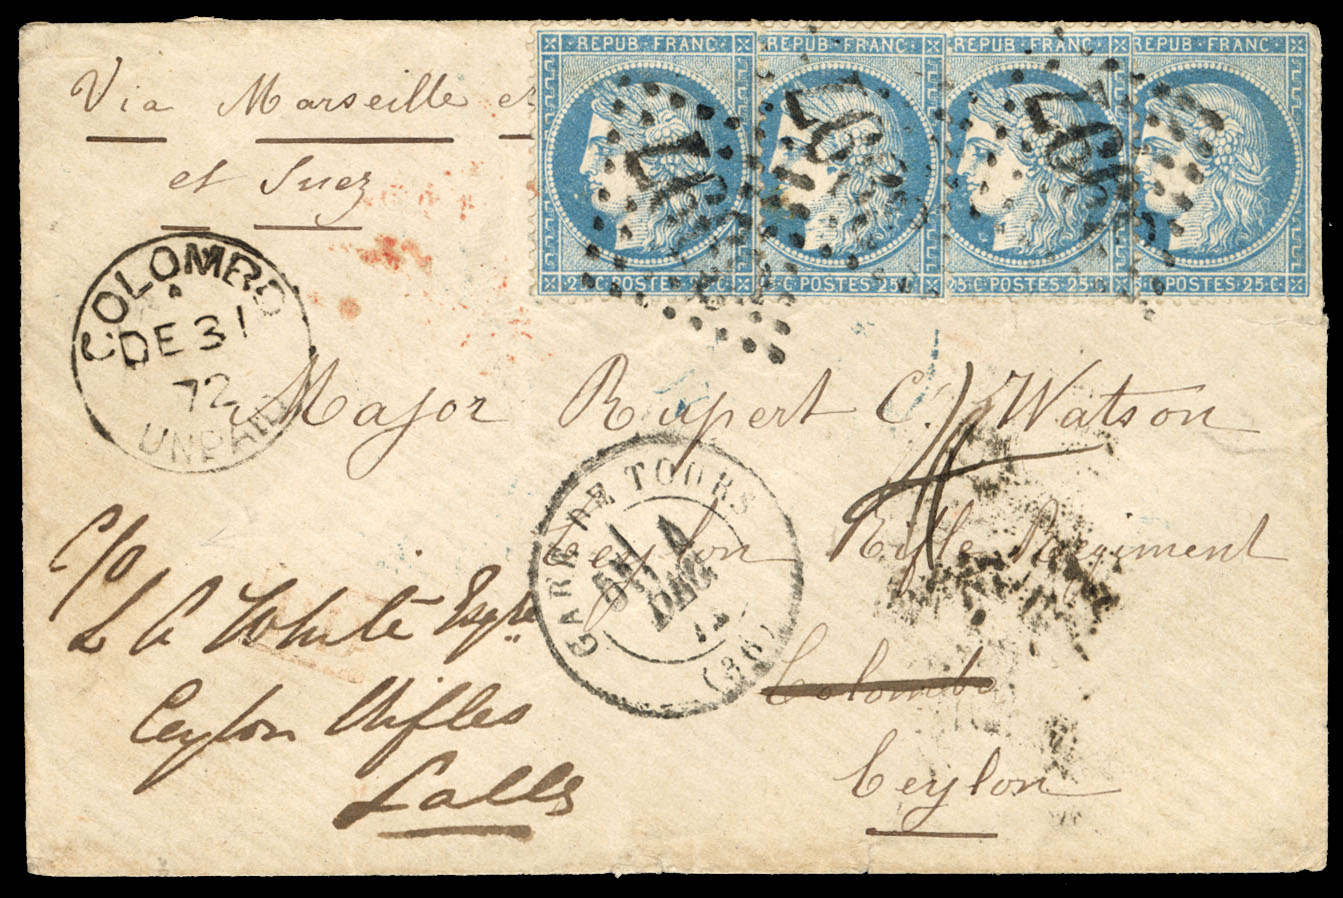 Via Marseille et
et Suez
REPUB. FRANC.
REPUB. FRANC.
REPUB. FRANC.
REPUB. FRANC.
25·C·POSTES·25·C·
5·C·POSTES·25·C
25·C·POSTES·25·C
5·C·POSTES·25·C·
COLOMBO
A
DE 31
72
UNPAID
Major Rupert C. Watson
GARE DE TOURS
DEC.
(36)
Ceylon Rifle Regiment
Colombo
Ceylon
C/o
White Esqre
Ceylon Rifles
Galle